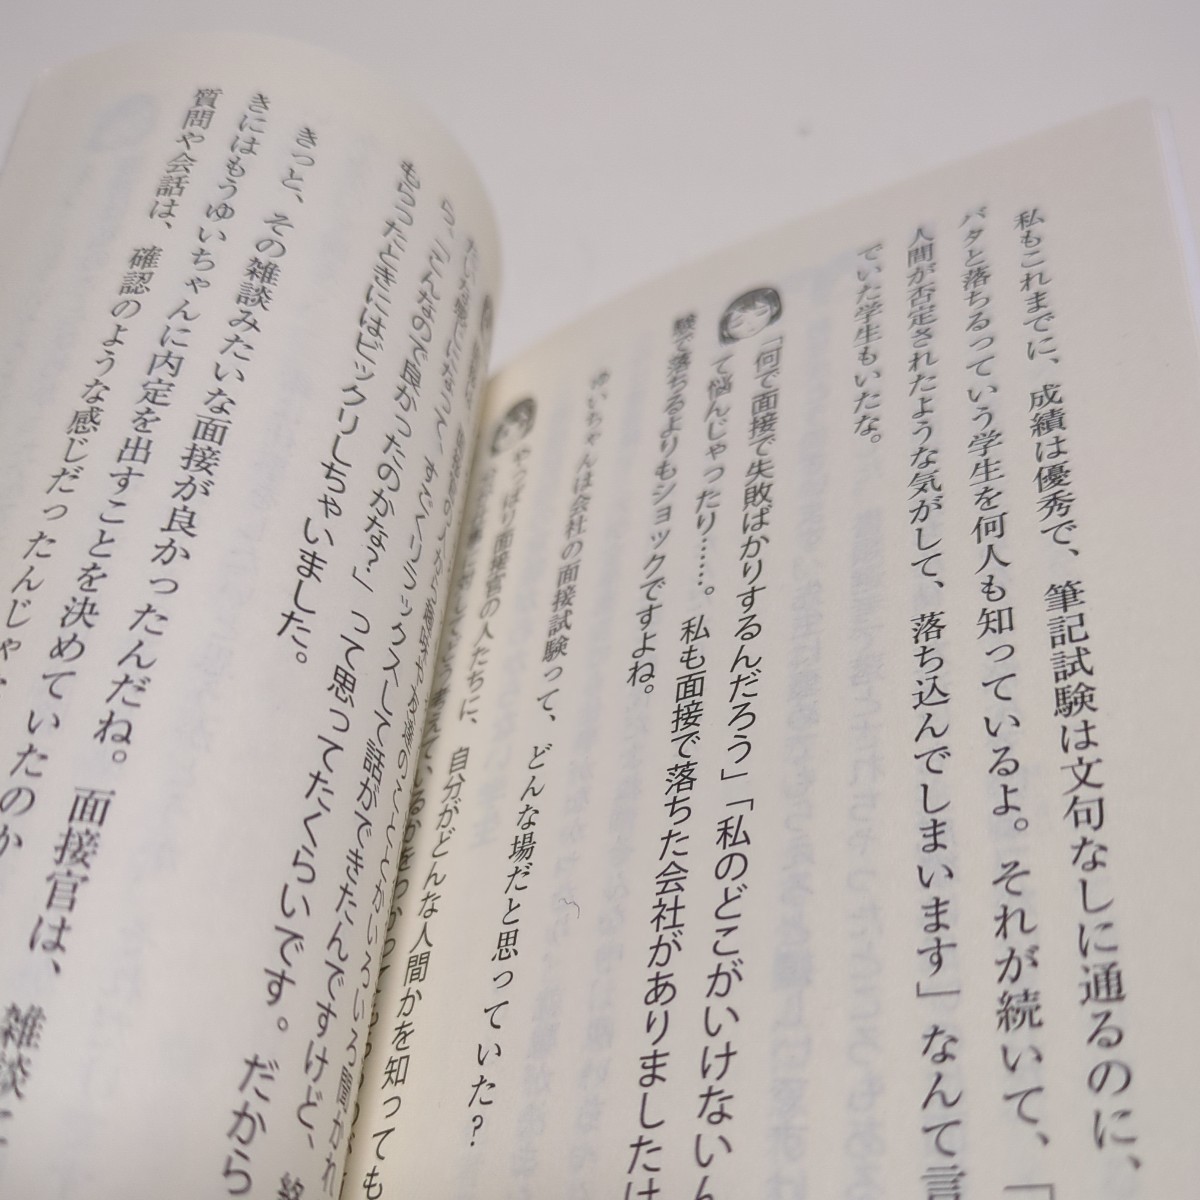 私もこれまでに、成績は優秀で、筆記試験は文句なしに通るのに、
バタと落ちるっていう学生を何人も知っているよ。それが続いて、「
人間が否定されたような気がして、落ち込んでしまいます」なんて言
でいた学生もいたな。
「何で面接で失敗ばかりするんだろう」「私のどこがいけないん
て悩んじゃったり……。私も面接で落ちた会社がありましたけ
験で落ちるよりもショックですよね。
ゆいちゃんは会社の面接試験って、どんな場だと思っていた?
やっぱり面接官の人たちに、自分がどんな人間かを知っても
考えているかをわかっても
すごくリラックスして話ができたんですけど、終
ら、「こんなので良かったのかな?」って思ってたくらいです。だから
もらったときにはビックリしちゃいました。
きっと、その雑談みたいな面接が良かったんだね。面接官は、雑談に
きにはもうゆいちゃんに内定を出すことを決めていたのか
質問や会話は、確認のような感じだったんじゃ